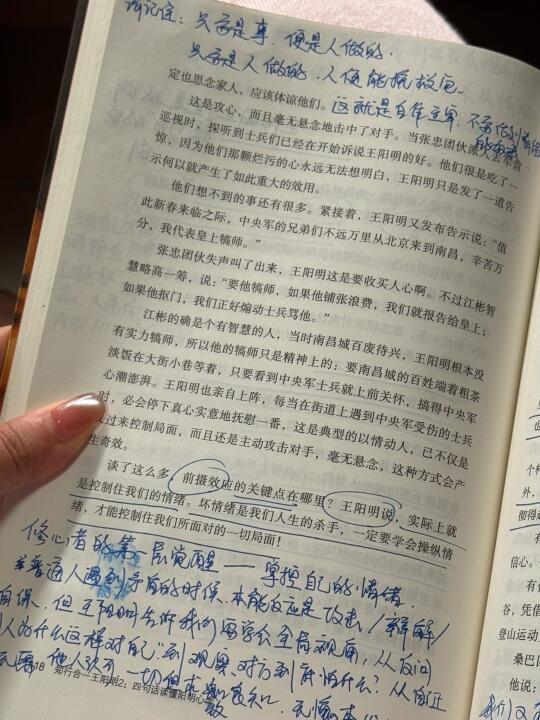 请记住：只要是事，便是人做的
只要是人做的，人便能
定也思念家人，应该体谅他们。这就是自
这是攻心，而且毫无悬念地击中了对手。当张忠团伙派人去军营
巡视时，探听到士兵们已经在开始诉说王阳明的好。他们很是吃了一
惊，因为他们那颗烂污的心永远无法想明白，王阳明只是发了一道告
示何以就产生了如此重大的效用。
他们想不到的事还有很多。紧接着，王阳明又发布告示说：“值
此新春来临之际，中央军的兄弟们不远万里从北京来到南昌，辛苦万
分，我代表皇上犒师。”
张忠团伙失声叫了出来，王阳明这是要收买人心啊。不过江彬智
慧略高一筹，说：“要他犒师，如果他铺张浪费，我们就报告给皇上；
如果他抠门，我们正好煽动士兵骂他。”
江彬的确是个有智慧的人，当时南昌城百废待兴，王阳明根本没
有实力犒师，所以他的犒师只是精神上的：要南昌城的百姓端着粗茶
淡饭在大街小巷等着，只要看到中央军士兵就上前关怀，搞得中央军
心潮澎湃。王阳明也亲自上阵，每当在街道上遇到中央军受伤的士兵
时，必会停下真心实意地抚慰一番，这是典型的以情动人，已不仅是
过来控制局面，而且还是主动攻击对手，毫无悬念，这种方式会产
生奇效。
谈了这么多，前摄效应的关键点在哪里？王阳明说，实际上就
是控制住我们的情绪。坏情绪是我们人生的杀手，一定要学会操纵情
绪，才能控制住我们所面对的一切局面！
修心者的第一层觉醒——掌控自己的情绪。
普通人遇到 的时候，本能反应是攻击/辩解/
自保，但王阳明告诉我们要学会全局观察，从反问
人为什么这样对自己”到观察“对方到底怕什么？从
18 知行合一王阳明2：四句话读懂阳明心学
他人认可 一切但求